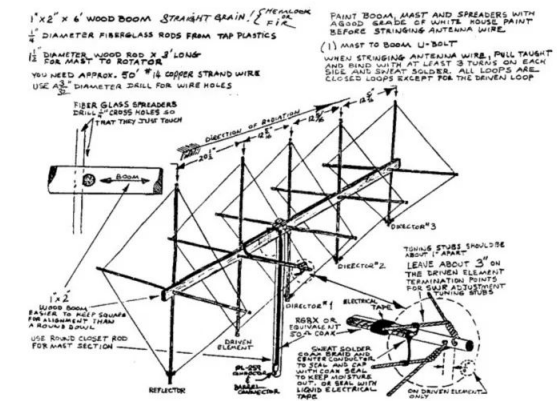 1"x2"x6' WOOD BOOM STRAIGHT GRAIN! (HEMLOCK OR FIR
1/4" DIAMETER FIBERGLASS RODS FROM TAP PLASTICS
DIAMETER WOOD ROD X 3' LONG
FOR MAST TO ROTATOR
YOU NEED APPROX. 50' #14 COPPER STRAND WIRE
USE A 3/32" DIAMETER DRILL FOR WIRE HOLES
PAINT BOOM, MAST AND SPREADERS WITH
A GOOD GRADE OF WHITE HOUSE PAINT
BEFORE STRINGING ANTENNA WIRE
(1) MAST TO BOOM U-BOLT
WHEN STRINGING ANTENNA WIRE, PULL TAUGHT
AND BIND WITH AT LEAST 3 TURNS ON EACH
SIDE AND SWEAT SOLDER. ALL LOOPS ARE
CLOSED LOOPS EXCEPT FOR THE DRIVEN LOOP
FIBER GLASS SPREADERS
DRILL 1/4" CROSS HOLES SO
THAT THEY JUST TOUCH
BOOM
DIRECTION OF RADIATION
1"x2"
WOOD BOOM
EASIER TO KEEP SQUARE
FOR ALIGNMENT THAN
A ROUND DOWL
USE ROUND CLOSET ROD
FOR MAST SECTION
REFLECTOR
DRIVEN
ELEMENT
DIRECTOR #1
DIRECTOR #2
DIRECTOR #3
PL-259
CONNECTOR
BARREL
CONNECTOR
RG8X OR
EQUIVALENT
50Ω COAX
SWEAT SOLDER
COAX BRAID AND
CENTER CONDUCTOR
TO SEAL AND CAP
WITH COAX SEAL
TO KEEP MOISTURE
OUT. OR SEAL WITH
LIQUID ELECTRICAL
TAPE
ELECTRICAL
TAPE
TUNING STUBS SHOULD BE
ABOUT 1" APART
LEAVE ABOUT 3" ON
THE DRIVEN ELEMENT
TERMINATION POINTS
FOR SWR ADJUSTMENT
TUNING STUBS
ON DRIVEN ELEMENT
ONLY